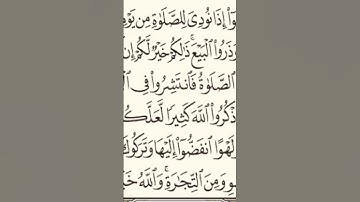 وٓا۟ إِذَا نُودِىَ لِلصَّلَوٰةِ مِن يَوْمِ
وَذَرُوا۟ ٱلْبَيْعَ ۚ ذَٰلِكُمْ خَيْرٌ لَّكُمْ إِن
ٱلصَّلَوٰةُ فَٱنتَشِرُوا۟ فِى
ذْكُرُوا۟ ٱللَّهَ كَثِيرًا لَّعَلَّكُ
لَهْوًا ٱنفَضُّوٓا۟ إِلَيْهَا وَتَرَكُوكَ
وِ وَمِنَ ٱلتِّجَـٰرَةِ ۚ وَٱللَّهُ خَيْ